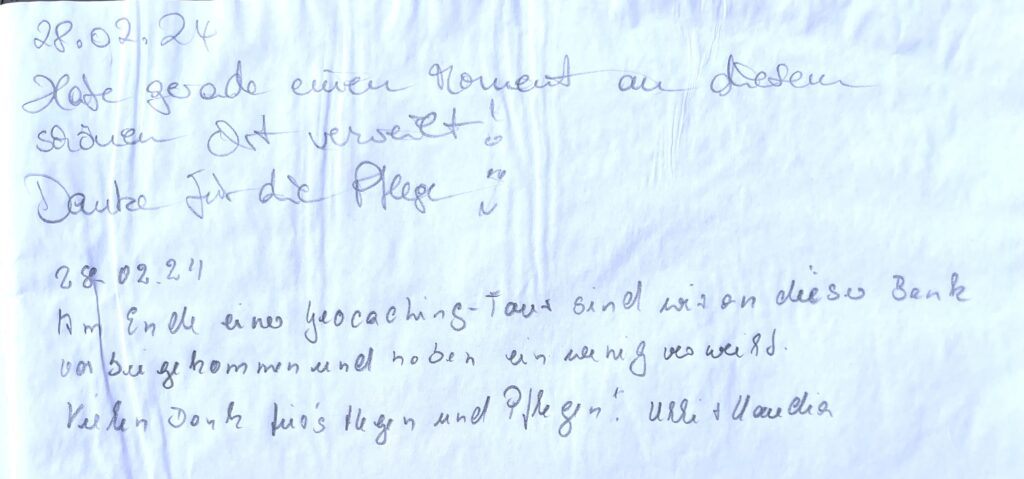 28.02.24
Habe gerade einen Moment an diesem
schönen Ort verweilt!
Danke für die Pflege
28.02.24
Am Ende einer Geocaching-Tour sind wir an dieser Bank
vorbeigekommen und haben ein wenig verweilt.
Vielen Dank für's Hegen und Pflegen! Ulli + Claudia